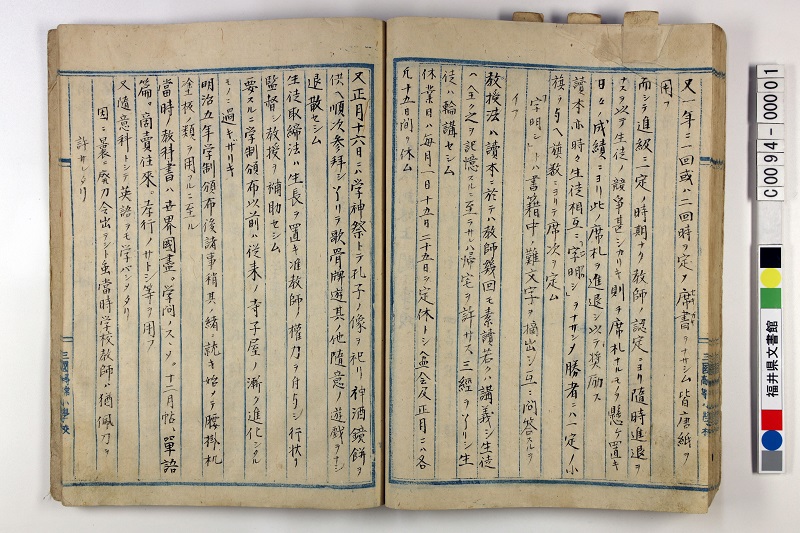 又一年ニ一回或ハ二回時ヲ定メ席書ヲナサシム皆唐紙ヲ
用フ
而シテ進級ニ一定ノ時期ナク教師ノ認定ニヨリ随時進退ヲ
ナスヲ以テ生徒ノ競爭甚シカリキ則チ席札ナルモノヲ懸ケ置キ
日々ノ成績ニヨリ此ノ席札ヲ進退シ以テ奨励ス
讀本亦時々生徒相互ニ「字明シ」ヲナサシメ勝者ニハ一定ノ小
旗ヲ与ヘ旗数ニヨリテ席次ヲ定ム
「字明シ」トハ書籍中ノ難文字ヲ摘出シ互ニ問答スルヲ
イフ
教授法ハ讀本ニ於テハ教師幾回モ素讀若クハ講義シ生徒
ハ全ク之ヲ記憶スルニ至ラサレハ帰宅ヲ許サス三經ヲ了リシ生
徒ハ輪講セシム
休業日ハ毎月一日十五日二十五日ヲ定休トシ盆会及正月ニハ各
凡十五日間ヲ休ム
又正月十六日ニハ学神祭トテ孔子ノ像ヲ祀リ神酒鏡餅ヲ
供ヘ順次参拜シ了リテ歌骨牌遊其ノ他随意ノ遊戯ヲナシ
退散セシム
生徒取締法ハ生長ヲ置キ准教師ノ權力ヲ付与シ行状ノ
監督ト教授ヲ補助セシム
要スルニ学制頒布以前ハ従来ノ寺子屋ノ漸ク進化シタル
モノニ過キサリキ
明治五年学制頒布後諸事稍其ノ緒ニ就キ始メテ腰掛机
塗板ノ類ヲ用フルニ至ル
當時ノ教科書ハ世界國盡。学问ノスヽメ。十二月帖、單語
篇。商賣往來。孝行ノサトシ等ヲ用フ
又随意科トシテ英語ヲモ学バシメタリ
因ニ曩ニ廃刀令出テシト虽當時学校教師ハ猶佩刀ヲ
許サレタリ
三國尋常小學校
三國尋常小學校
C0094-00001
福井県文書館